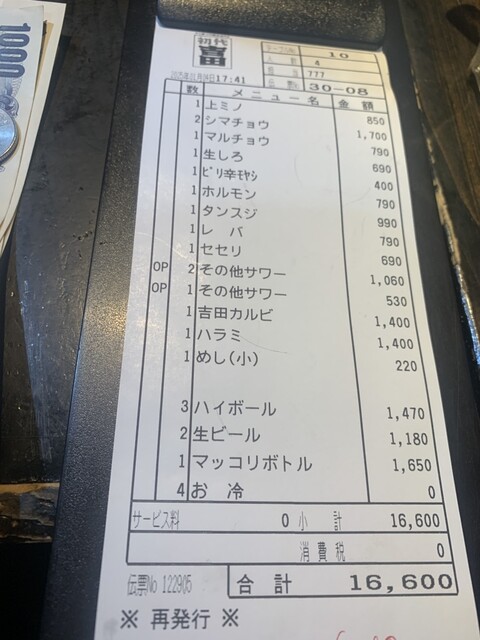 1000
初代
吉田
テーブルNo. 10
人数 4
担当 777
17:41 伝票No 30-08
数 メニュー名 金額
1 上ミノ 850
2 シマチョウ 1,700
1 マルチョウ 790
1 生しろ 690
1 ピリ辛モヤシ 400
1 ホルモン 790
1 タンスジ 990
1 レバ 790
1 セセリ 690
OP 2 その他サワー 1,060
OP 1 その他サワー 530
1 吉田カルビ 1,400
1 ハラミ 1,400
1 めし(小) 220
3 ハイボール 1,470
2 生ビール 1,180
1 マッコリボトル 1,650
4 お 冷 0
サービス料 0 小 計 16,600
消費税 0
伝票No 122905 合 計 16,600
※ 再発行 ※